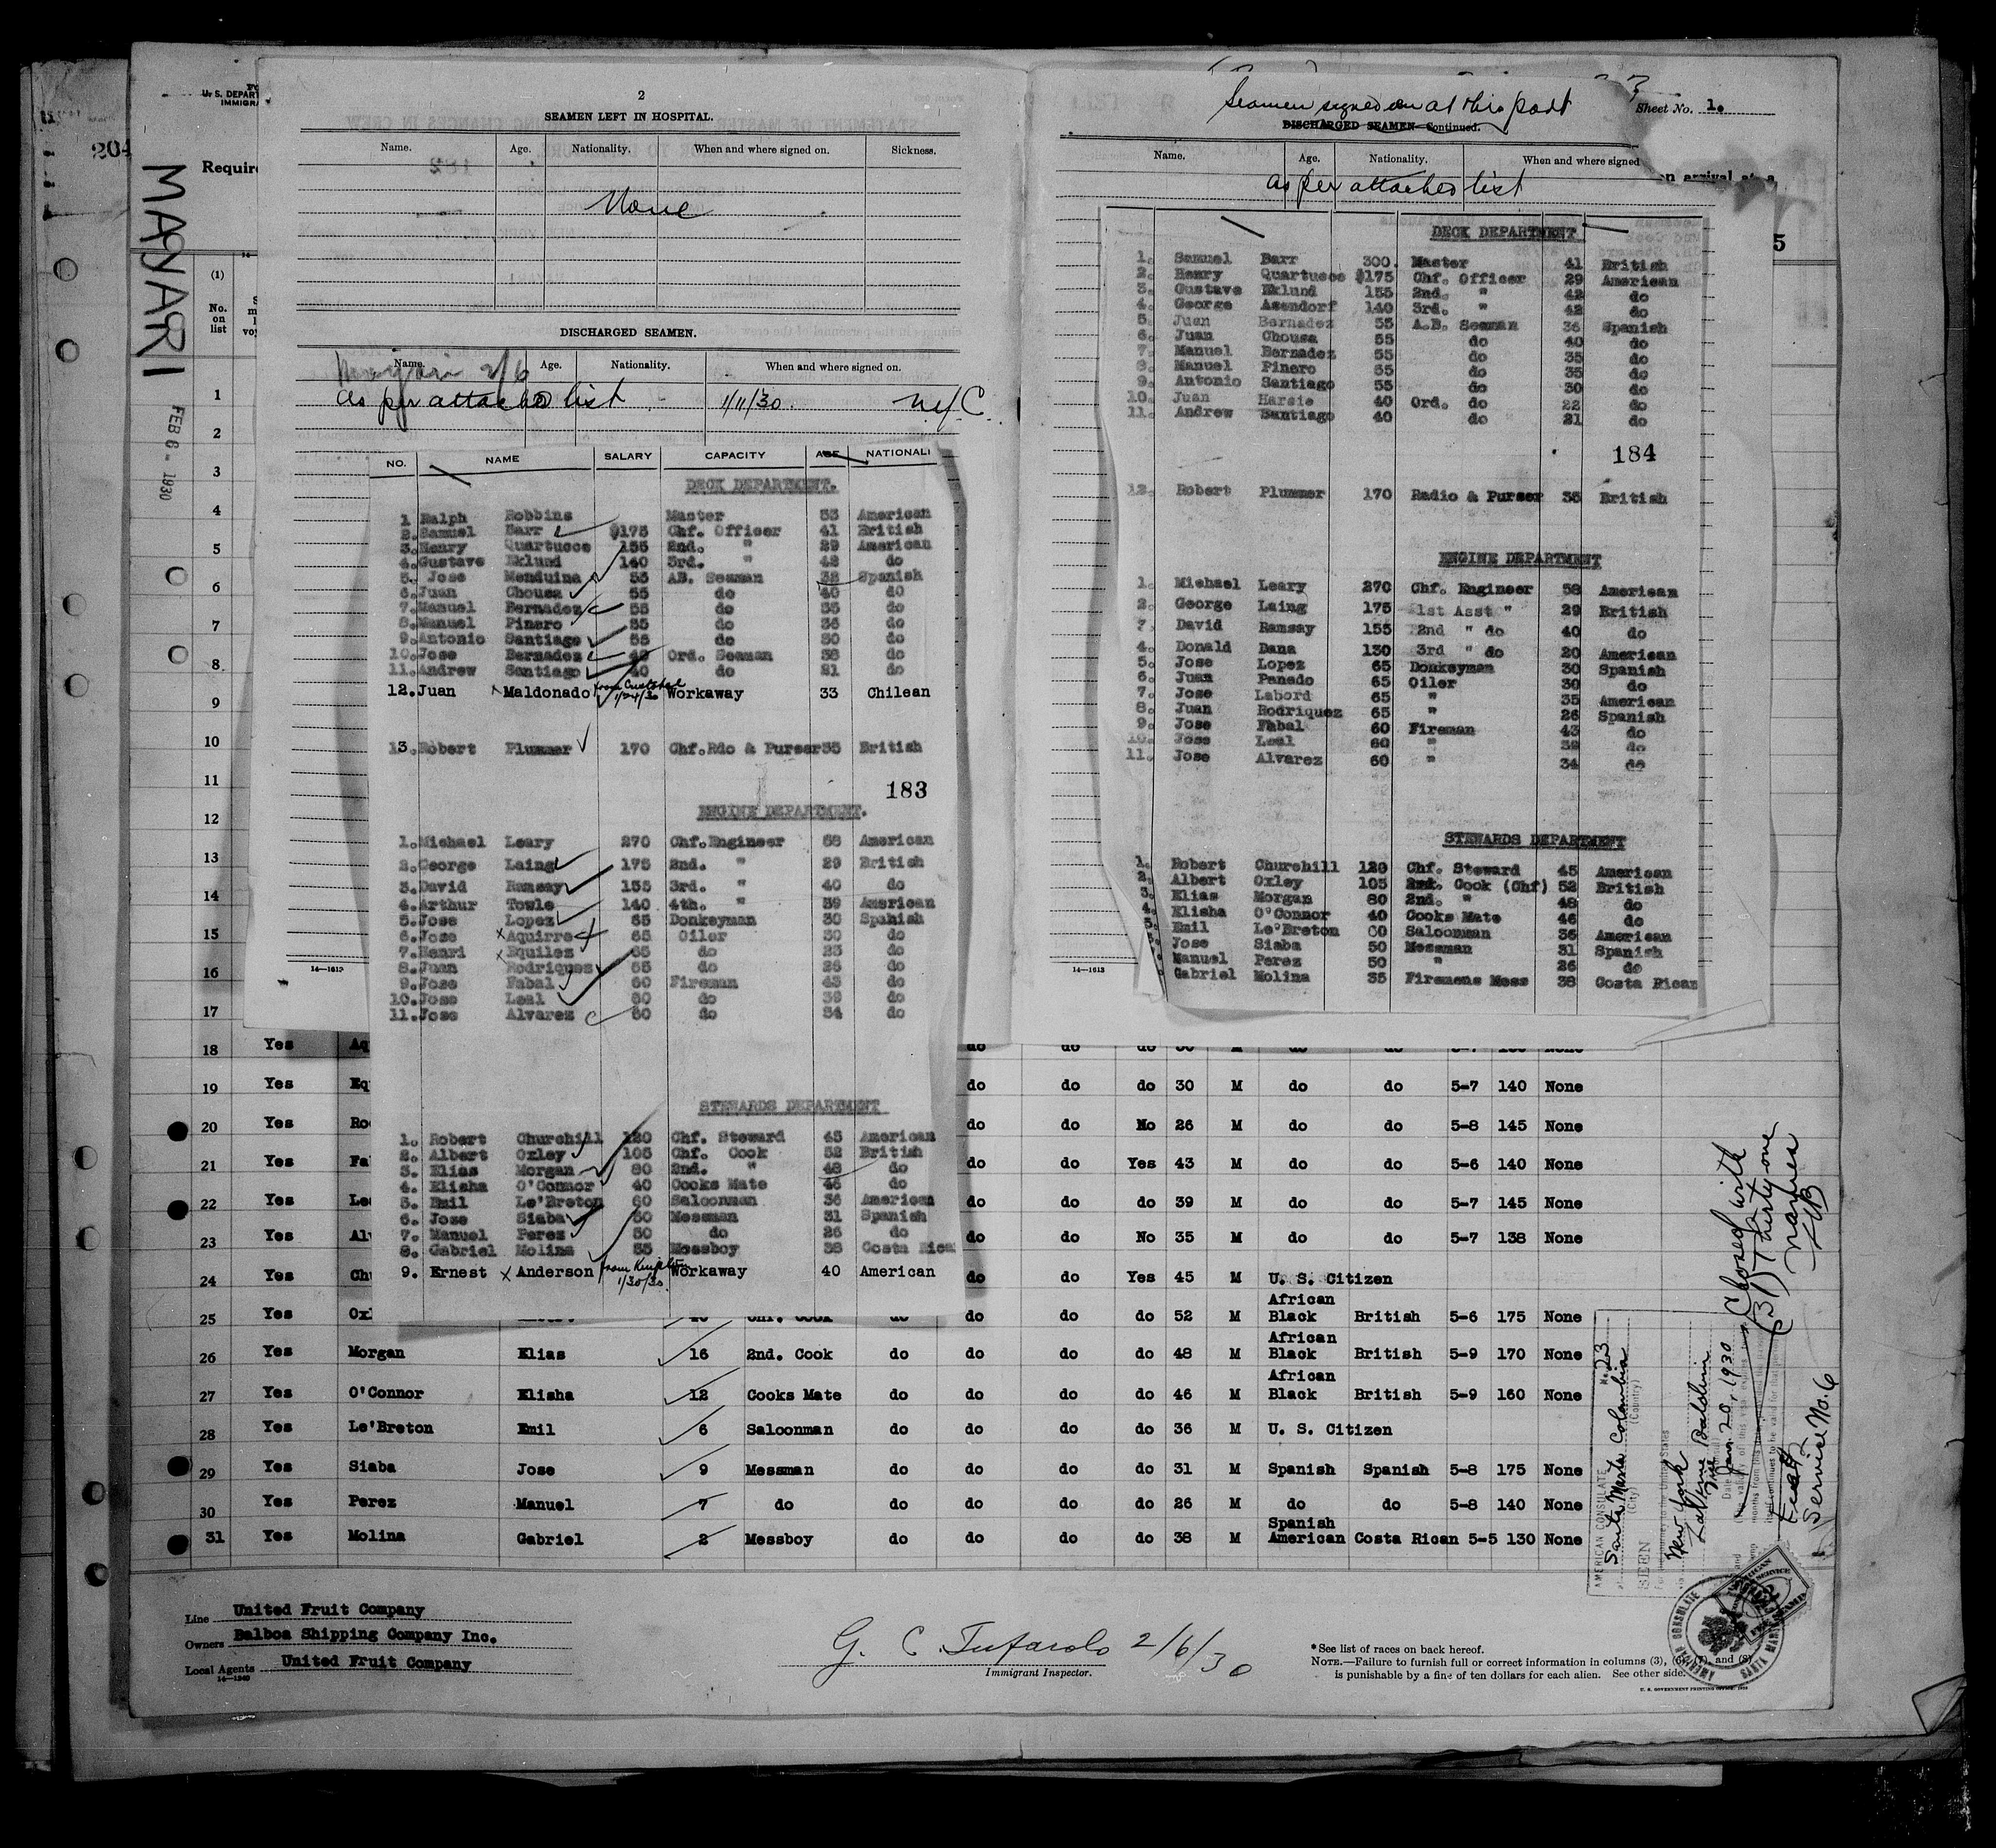 204
MAYARI
FEB 6- 1930
U. S. DEPART
IMMIGRA
Require
(1)
No. on list
2
SEAMEN LEFT IN HOSPITAL.
Name. Age. Nationality. When and where signed on. Sickness.
None
DISCHARGED SEAMEN.
Name. Age. Nationality. When and where signed on.
2/6
as per attached list 1/11/30. N.Y.C.
NO. NAME SALARY CAPACITY AGE NATIONALI
DECK DEPARTMENT.
1 Ralph Robbins Master 53 American
2. Samuel Barr $175 Chf. Officer 41 British
3. Henry Quartucce 155 2nd. " 29 American
4. Gustave Eklund 140 3rd. " 42 do
5. Jose Menduina 55 AB. Seaman 38 Spanish
6. Juan Chousa 55 do 40 do
7. Manuel Bernadez 55 do 35 do
8. Manuel Pinero 55 do 36 do
9. Antonio Santiago 55 do 30 do
10. Jose Bernadez 40 Ord. Seaman 38 do
11. Andrew Santiago 40 do 21 do
12. Juan x Maldonado from Cristobal 1/24/30 Workaway 33 Chilean
13. Robert Plummer 170 Chf.Rdo & Purser 35 British
183
ENGINE DEPARTMENT.
1. Michael Leary 270 Chf.Engineer 58 American
2. George Laing 175 2nd. " 29 British
3. David Ramsay 155 3rd. " 40 do
4. Arthur Towle 140 4th. " 39 American
5. Jose Lopez 65 Donkeyman 30 Spanish
6. Jose x Aquirre 65 Oiler 30 do
7. Henri x Equilez 65 do 23 do
8. Juan Rodriquez 65 do 26 do
9. Jose Fabal 60 Fireman 43 do
10. Jose Leal 60 do 39 do
11. Jose Alvarez 60 do 34 do
STEWARDS DEPARTMENT
1. Robert Churchill 120 Chf. Steward 45 American
2. Albert Oxley 105 Chf. Cook 52 British
3. Elias Morgan 80 2nd. " 48 do
4. Elisha O'Connor 40 Cooks Mate 46 do
5. Emil Le'Breton 60 Saloonman 36 American
6. Jose Siaba 50 Messman 31 Spanish
7. Manuel Perez 50 do 26 do
8. Gabriel Molina 35 Messboy 38 Costa Rica
9. Ernest x Anderson from Kingston 1/30/30. Workaway 40 American
14—1613
Seamen signed on at this port
Sheet No. 1.
DISCHARGED SEAMEN—Continued.
Name. Age. Nationality. When and where signed
on arrival at a
as per attached list
5
DECK DEPARTMENT
1. Samuel Barr 300. Master 41 British
2. Henry Quartucce $175 Chf. Officer 29 American
3. Gustave Eklund 155 2nd. " 42 do
4. George Asendorf 140 3rd. " 42 do
5. Juan Bernadez 55 A.B. Seaman 36 Spanish
6. Juan Chousa 55 do 40 do
7. Manuel Bernadez 55 do 35 do
8. Manuel Pinero 55 do 35 do
9. Antonio Santiago 55 do 30 do
10. Juan Harsie 40 Ord. do 22 do
11. Andrew Santiago 40 do 21 do
184
12. Robert Plummer 170 Radio & Purser 35 British
ENGINE DEPARTMENT
1. Michael Leary 270 Chf. Engineer 58 American
2. George Laing 175 1st Asst " 29 British
7. David Ramsay 155 2nd " do 40 do
4. Donald Dana 130 3rd " do 20 American
5. Jose Lopez 65 Donkeyman 30 Spanish
6. Juan Panedo 65 Oiler 30 do
7. Jose Labord 65 " 35 American
8. Juan Rodriquez 65 " 26 Spanish
9. Jose Fabal 60 Fireman 43 do
10. Jose Leal 60 " 39 do
11. Jose Alvarez 60 " 34 do
STEWARDS DEPARTMENT
1. Robert Churchill 120 Chf. Steward 45 American
2. Albert Oxley 105 2nd. Cook (Chf) 52 British
3. Elias Morgan 80 2nd. " 48 do
4. Elisha O'Connor 40 Cooks Mate 46 do
5. Emil Le'Breton 60 Saloonman 36 American
Jose Siaba 50 Messman 31 Spanish
Manuel Perez 50 " 26 do
Gabriel Molina 35 Firemens Mess 38 Costa Rican
14—1613
1
2
3
4
5
6
7
8
9
10
11
12
13
14
15
16
17
18 Yes Aq do do do 30 M do do 5-7 None
19 Yes Eq do do do 30 M do do 5-7 140 None
20 Yes Ro do do No 26 M do do 5-8 145 None
21 Yes Fa do do Yes 43 M do do 5-6 140 None
22 Yes Le do do do 39 M do do 5-7 145 None
23 Yes Al do do No 35 M do do 5-7 138 None
24 Yes Ch do do Yes 45 M U. S. Citizen
25 Yes Oxl Chf. Cook do do do 52 M African Black British 5-6 175 None
26 Yes Morgan Elias 16 2nd. Cook do do do do 48 M African Black British 5-9 170 None
27 Yes O'Connor Elisha 12 Cooks Mate do do do do 46 M African Black British 5-9 160 None
28 Yes Le'Breton Emil 6 Saloonman do do do do 36 M U. S. Citizen
29 Yes Siaba Jose 9 Messman do do do do 31 M Spanish Spanish 5-8 175 None
30 Yes Perez Manuel 7 do do do do do 26 M do do 5-8 140 None
31 Yes Molina Gabriel 2 Messboy do do do do 38 M Spanish American Costa Rican 5-5 130 None
Closed with
(31) Thirty one
names
AMERICAN CONSULATE No. 23
Santa Marta Colombia
(City) (Country)
SEEN
For the journey to the United States
New York
Jan. 20, 1930
Service No. 6
AMERICAN CONSULATE
SANTA MARTA
AMERICAN
SERVICE
FEE STAMP
Line United Fruit Company
Owners Balboa Shipping Company Inc.
Local Agents United Fruit Company
14—1240
G. C. Tufarolo 2/6/30
Immigrant Inspector.
*See list of races on back hereof.
NOTE.—Failure to furnish full or correct information in columns (3), (6), (7), and (8)
is punishable by a fine of ten dollars for each alien. See other side.
U. S. GOVERNMENT PRINTING OFFICE: 1929